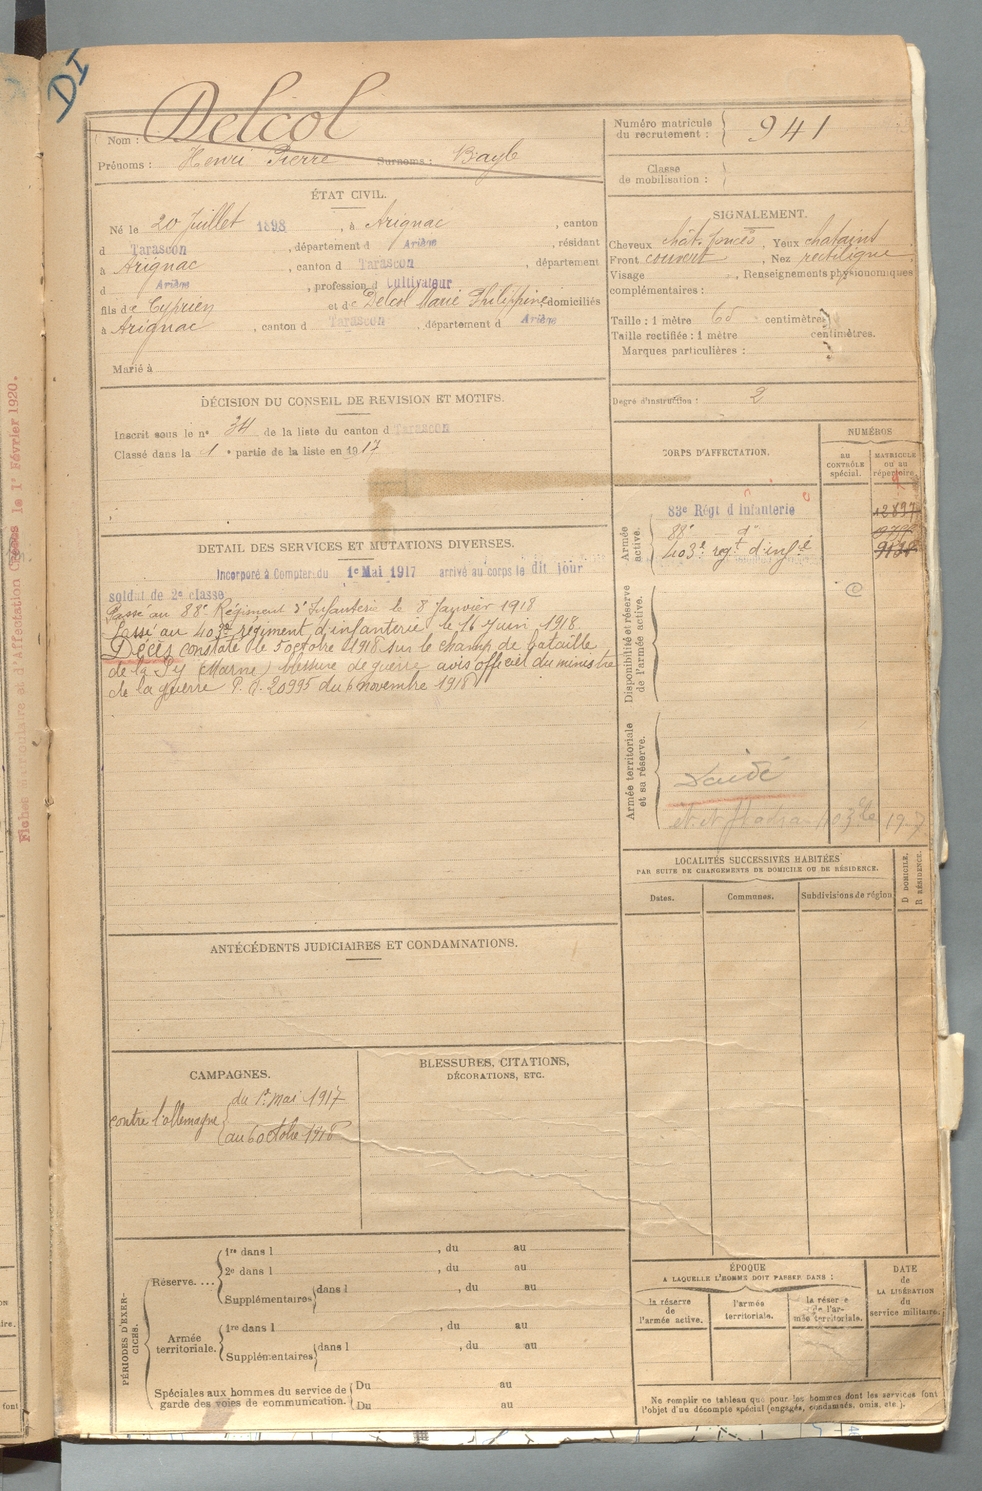 DI
Delcol
Nom :
Prénoms : Henri Pierre Surnoms : Bayle
Numéro matricule
du recrutement : 941
Classe
de mobilisation :
ÉTAT CIVIL.
Né le 20 Juillet 1898, à Arignac, canton
d Tarascon, département d Ariège, résidant
à Arignac, canton d Tarascon, département
d Ariège, profession d Cultivateur
fils de Cyprien et de Delcol Marie Philippine domiciliés
à Arignac, canton d Tarascon, département d Ariège
Marié à
SIGNALEMENT.
Cheveux chât. foncés, Yeux chataint
Front couvert, Nez rectiligne
Visage , Renseignements physionomiques
complémentaires :
Taille : 1 mètre 65 centimètres
Taille rectifiée : 1 mètre centimètres.
Marques particulières :
Degré d'instruction : 2
DÉCISION DU CONSEIL DE REVISION ET MOTIFS.
Inscrit sous le n° 34 de la liste du canton d Tarascon
Classé dans la 1e partie de la liste en 1917
DÉTAIL DES SERVICES ET MUTATIONS DIVERSES.
Incorporé à Compter du 1e Mai 1917 arrivé au corps le dit jour
soldat de 2e classe
Passé au 88e Régiment d'Infanterie le 8 Janvier 1918
Passé au 403e régiment d'infanterie le 16 Juin 1918.
Décès constaté le 5 octobre 1918 sur le champ de bataille
de la Py (Marne) blessure de guerre avis officiel du ministre
de la guerre P. N. 20995 du 6 novembre 1918
CORPS D'AFFECTATION.
NUMÉROS
AU
CONTRÔLE
spécial.
MATRICULE
ou au
répertoire.
Armée
active.
83e Régt d'Infanterie 12897
88e d°
403e regt d'infie
Disponibilité et réserve
de l'armée active.
Armée territoriale
et sa réserve.
LOCALITÉS SUCCESSIVES HABITÉES
PAR SUITE DE CHANGEMENTS DE DOMICILE OU DE RÉSIDENCE.
Dates.
Communes.
Subdivisions de région
D DOMICILE.
R RÉSIDENCE.
ANTÉCÉDENTS JUDICIAIRES ET CONDAMNATIONS.
CAMPAGNES.
contre l'allemagne
du 1e mai 1917
au 6 octobre 1918
BLESSURES, CITATIONS,
DÉCORATIONS, ETC.
PÉRIODES D'EXERCICES.
Réserve....
1re dans l , du au
2e dans l , du au
Supplémentaires dans l , du au
Armée
territoriale.
1re dans l , du au
Supplémentaires dans l , du au
Spéciales aux hommes du service de
garde des voies de communication.
Du au
Du au
ÉPOQUE
A LAQUELLE L'HOMME DOIT PASSER DANS :
la réserve
de
l'armée active.
l'armée
territoriale.
la réserve
de l'ar-
mée territoriale.
DATE
de
LA LIBÉRATION
du
service militaire.
Ne remplir ce tableau que pour les hommes dont les services font
l'objet d'un décompte spécial (engagés, condamnés, omis, etc.).